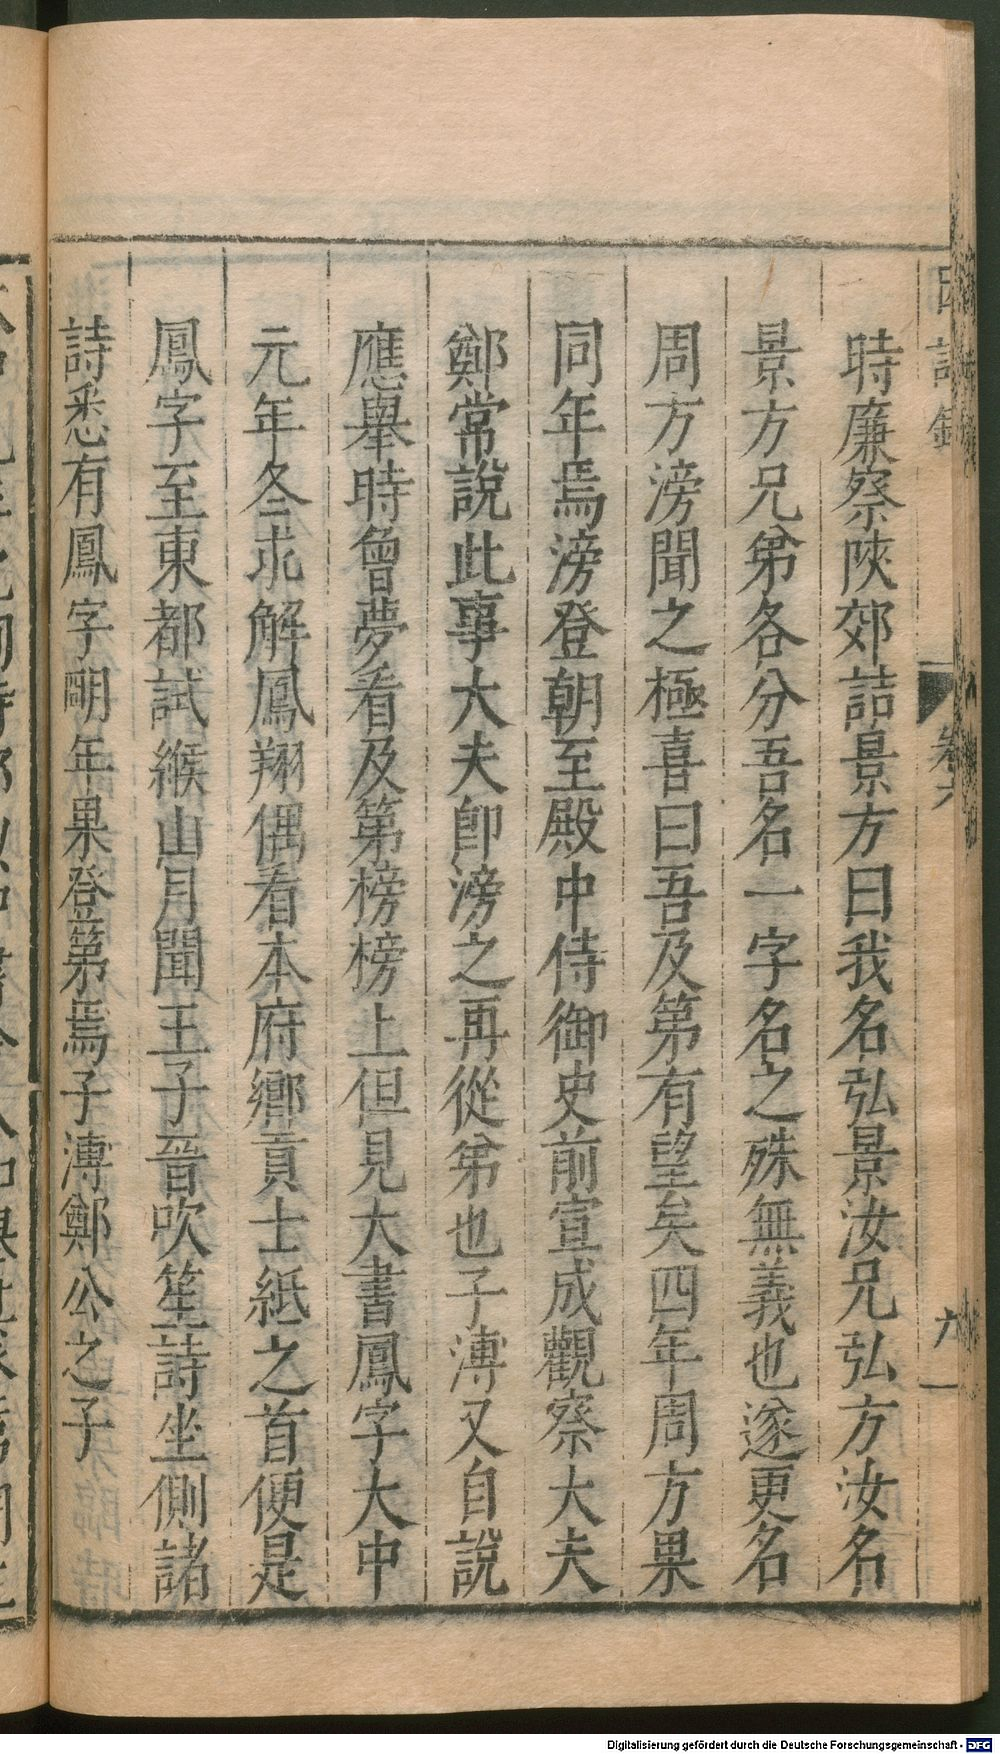 時廉察陝郊詰景方曰我名弘景汝兄弘方汝名
景方兄弟各分吾名一字名之殊無義也遂更名
周方滂聞之極喜曰吾及第有望矣四年周方果
同年焉滂登朝至殿中侍御史前宣成觀察大夫
鄭常說此事大夫卽滂之再從弟也子溥又自說
應舉時曾夢看及第榜榜上但見大書鳳字大中
元年冬求解鳳翔偶看本府鄉貢士紙之首便是
鳳字至東都試緱山月聞王子晉吹笙詩坐側諸
詩悉有鳳字明年果登第焉子溥鄭公之子
卷六
六
Digitalisierung gefördert durch die Deutsche Forschungsgemeinschaft - DFG